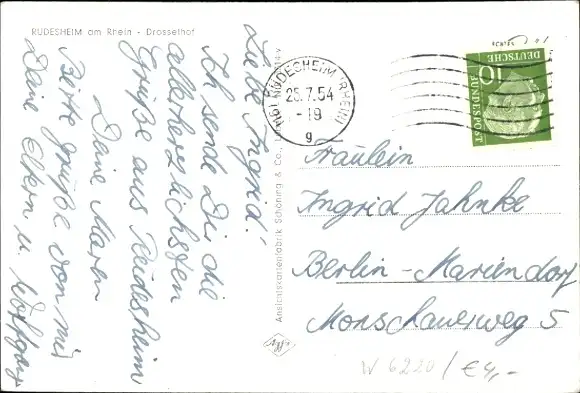 RÜDESHEIM am Rhein - Drosselhof
Liebe Ingrid!
Ich sende Dir die
allerherzlichsten
Grüße aus Rüdesheim
Deine Maren
Bitte grüße von mir
Deine Eltern u. Wolfgang
Ansichtskartenfabrik Schöning & Co.
(16) RÜDESHEIM (RHEIN)
25.7.54
-19
g
10
DEUTSCHE
BUNDESPOST
Fräulein
Ingrid Jahnke
Berlin-Mariendorf
Monschauerweg 5
W 6220 / € 4,-